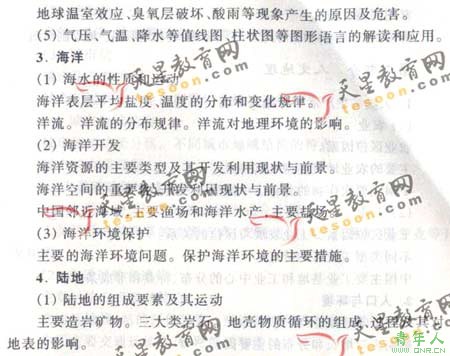 地球温室效应、臭氧层破坏、酸雨等现象产生的原因及危害。
(5) 气压、气温、降水等值线图、柱状图等图形语言的解读和应用。
3. 海洋
(1) 海水的性质和运动
海洋表层平均盐度、温度的分布和变化规律。
洋流。洋流的分布规律。洋流对地理环境的影响。
(2) 海洋开发
海洋资源的主要类型及其开发利用现状与前景。
海洋空间的重要性。开发利用现状与前景。
中国邻近海域。主要渔场和海洋水产。主要盐场。
(3) 海洋环境保护
主要的海洋环境问题。保护海洋环境的主要措施。
4. 陆地
(1) 陆地的组成要素及其运动
主要造岩矿物。三大类岩石。地壳物质循环的组成、过程及其对
地表的影响。
天星教育网
tesoon.com
天星教育网
tesoon.com
天星教育网
tesoon.com
天星教育网
tesoon.com
青年人
QNR.CN